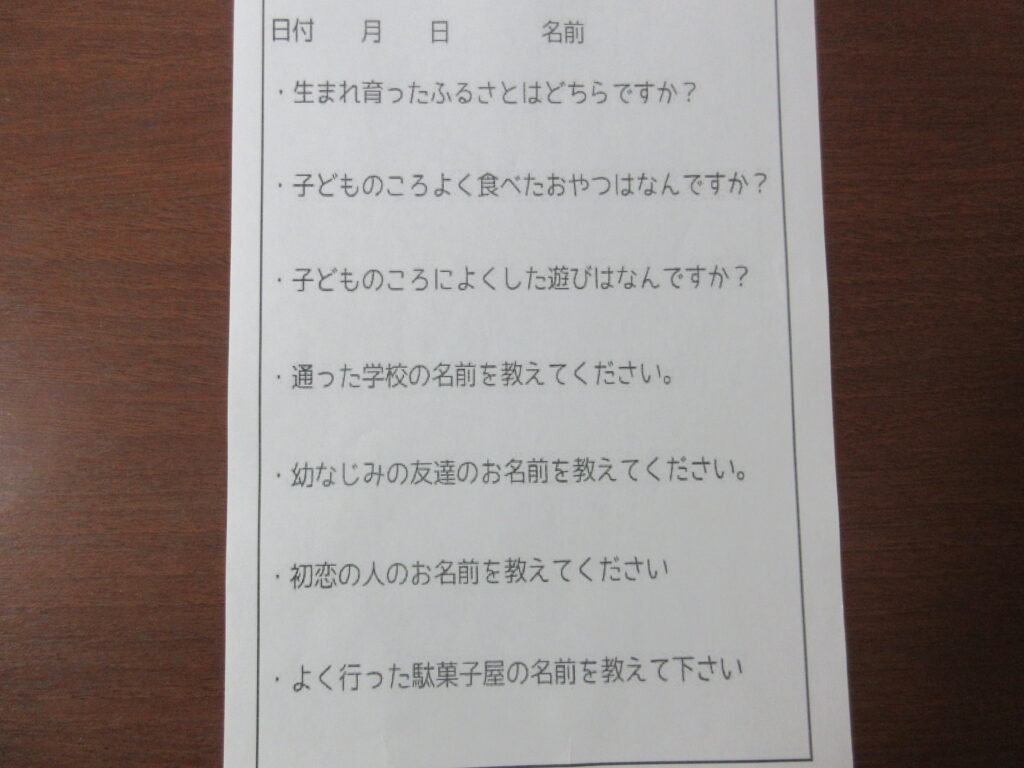 日付　　月　　日　　　　名前
・生まれ育ったふるさとはどちらですか？
・子どものころよく食べたおやつはなんですか？
・子どものころによくした遊びはなんですか？
・通った学校の名前を教えてください。
・幼なじみの友達のお名前を教えてください。
・初恋の人のお名前を教えてください
・よく行った駄菓子屋の名前を教えて下さい